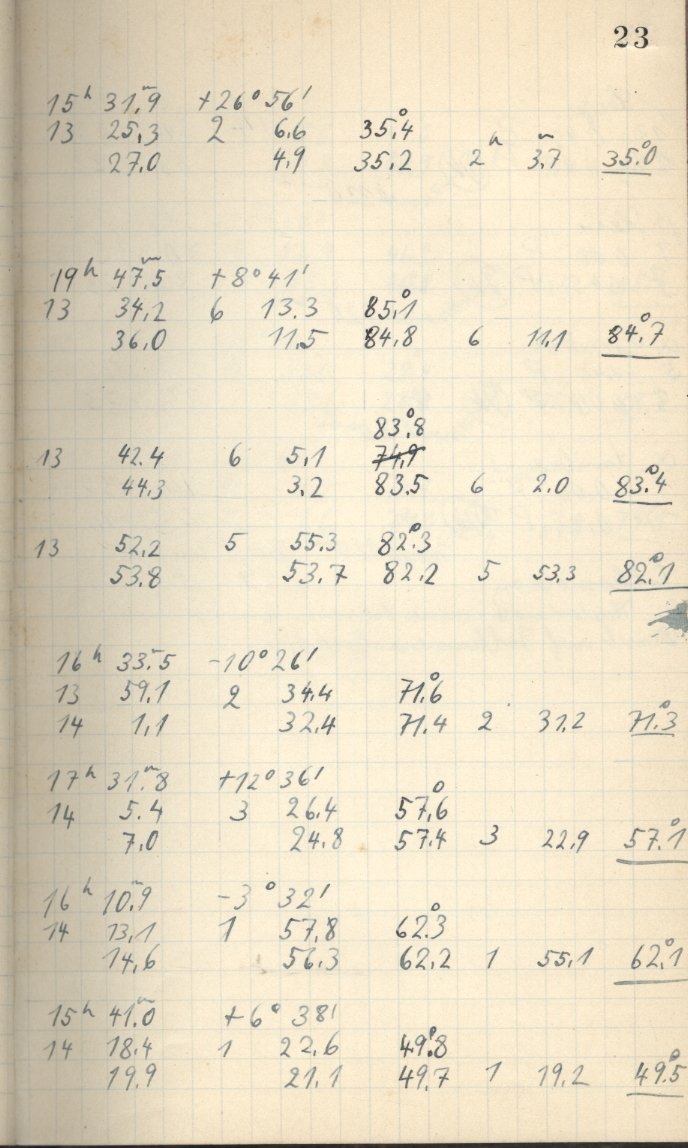 23
15ʰ 31ᵐ.9 +26° 56'
13 25,3 2 6.6 35°.4
27.0 4.9 35.2 2ʰ 3ᵐ.7 35°.0
19ʰ 47ᵐ.5 +8° 41'
13 34,2 6 13.3 85°.1
36,0 11.5 84.8 6 11.1 84°.7
83°.8
13 42.4 6 5,1 74,9
44,3 3.2 83.5 6 2.0 83°.4
13 52,2 5 55.3 82°.3
53.8 53.7 82.2 5 53.3 82°.1
16ʰ 33ᵐ.5 -10° 26'
13 59,1 2 34.4 71°.6
14 1,1 32.4 71.4 2 31,2 71°.3
17ʰ 31ᵐ.8 +12° 36'
14 5.4 3 26.4 57°.6
7,0 24.8 57.4 3 22,9 57°.1
16ʰ 10ᵐ.9 -3° 32'
14 13,1 1 57,8 62°.3
14,6 56.3 62,2 1 55,1 62°.1
15ʰ 41ᵐ.0 +6° 38'
14 18.4 1 22.6 49°.8
19.9 21.1 49.7 1 19.2 49°.5